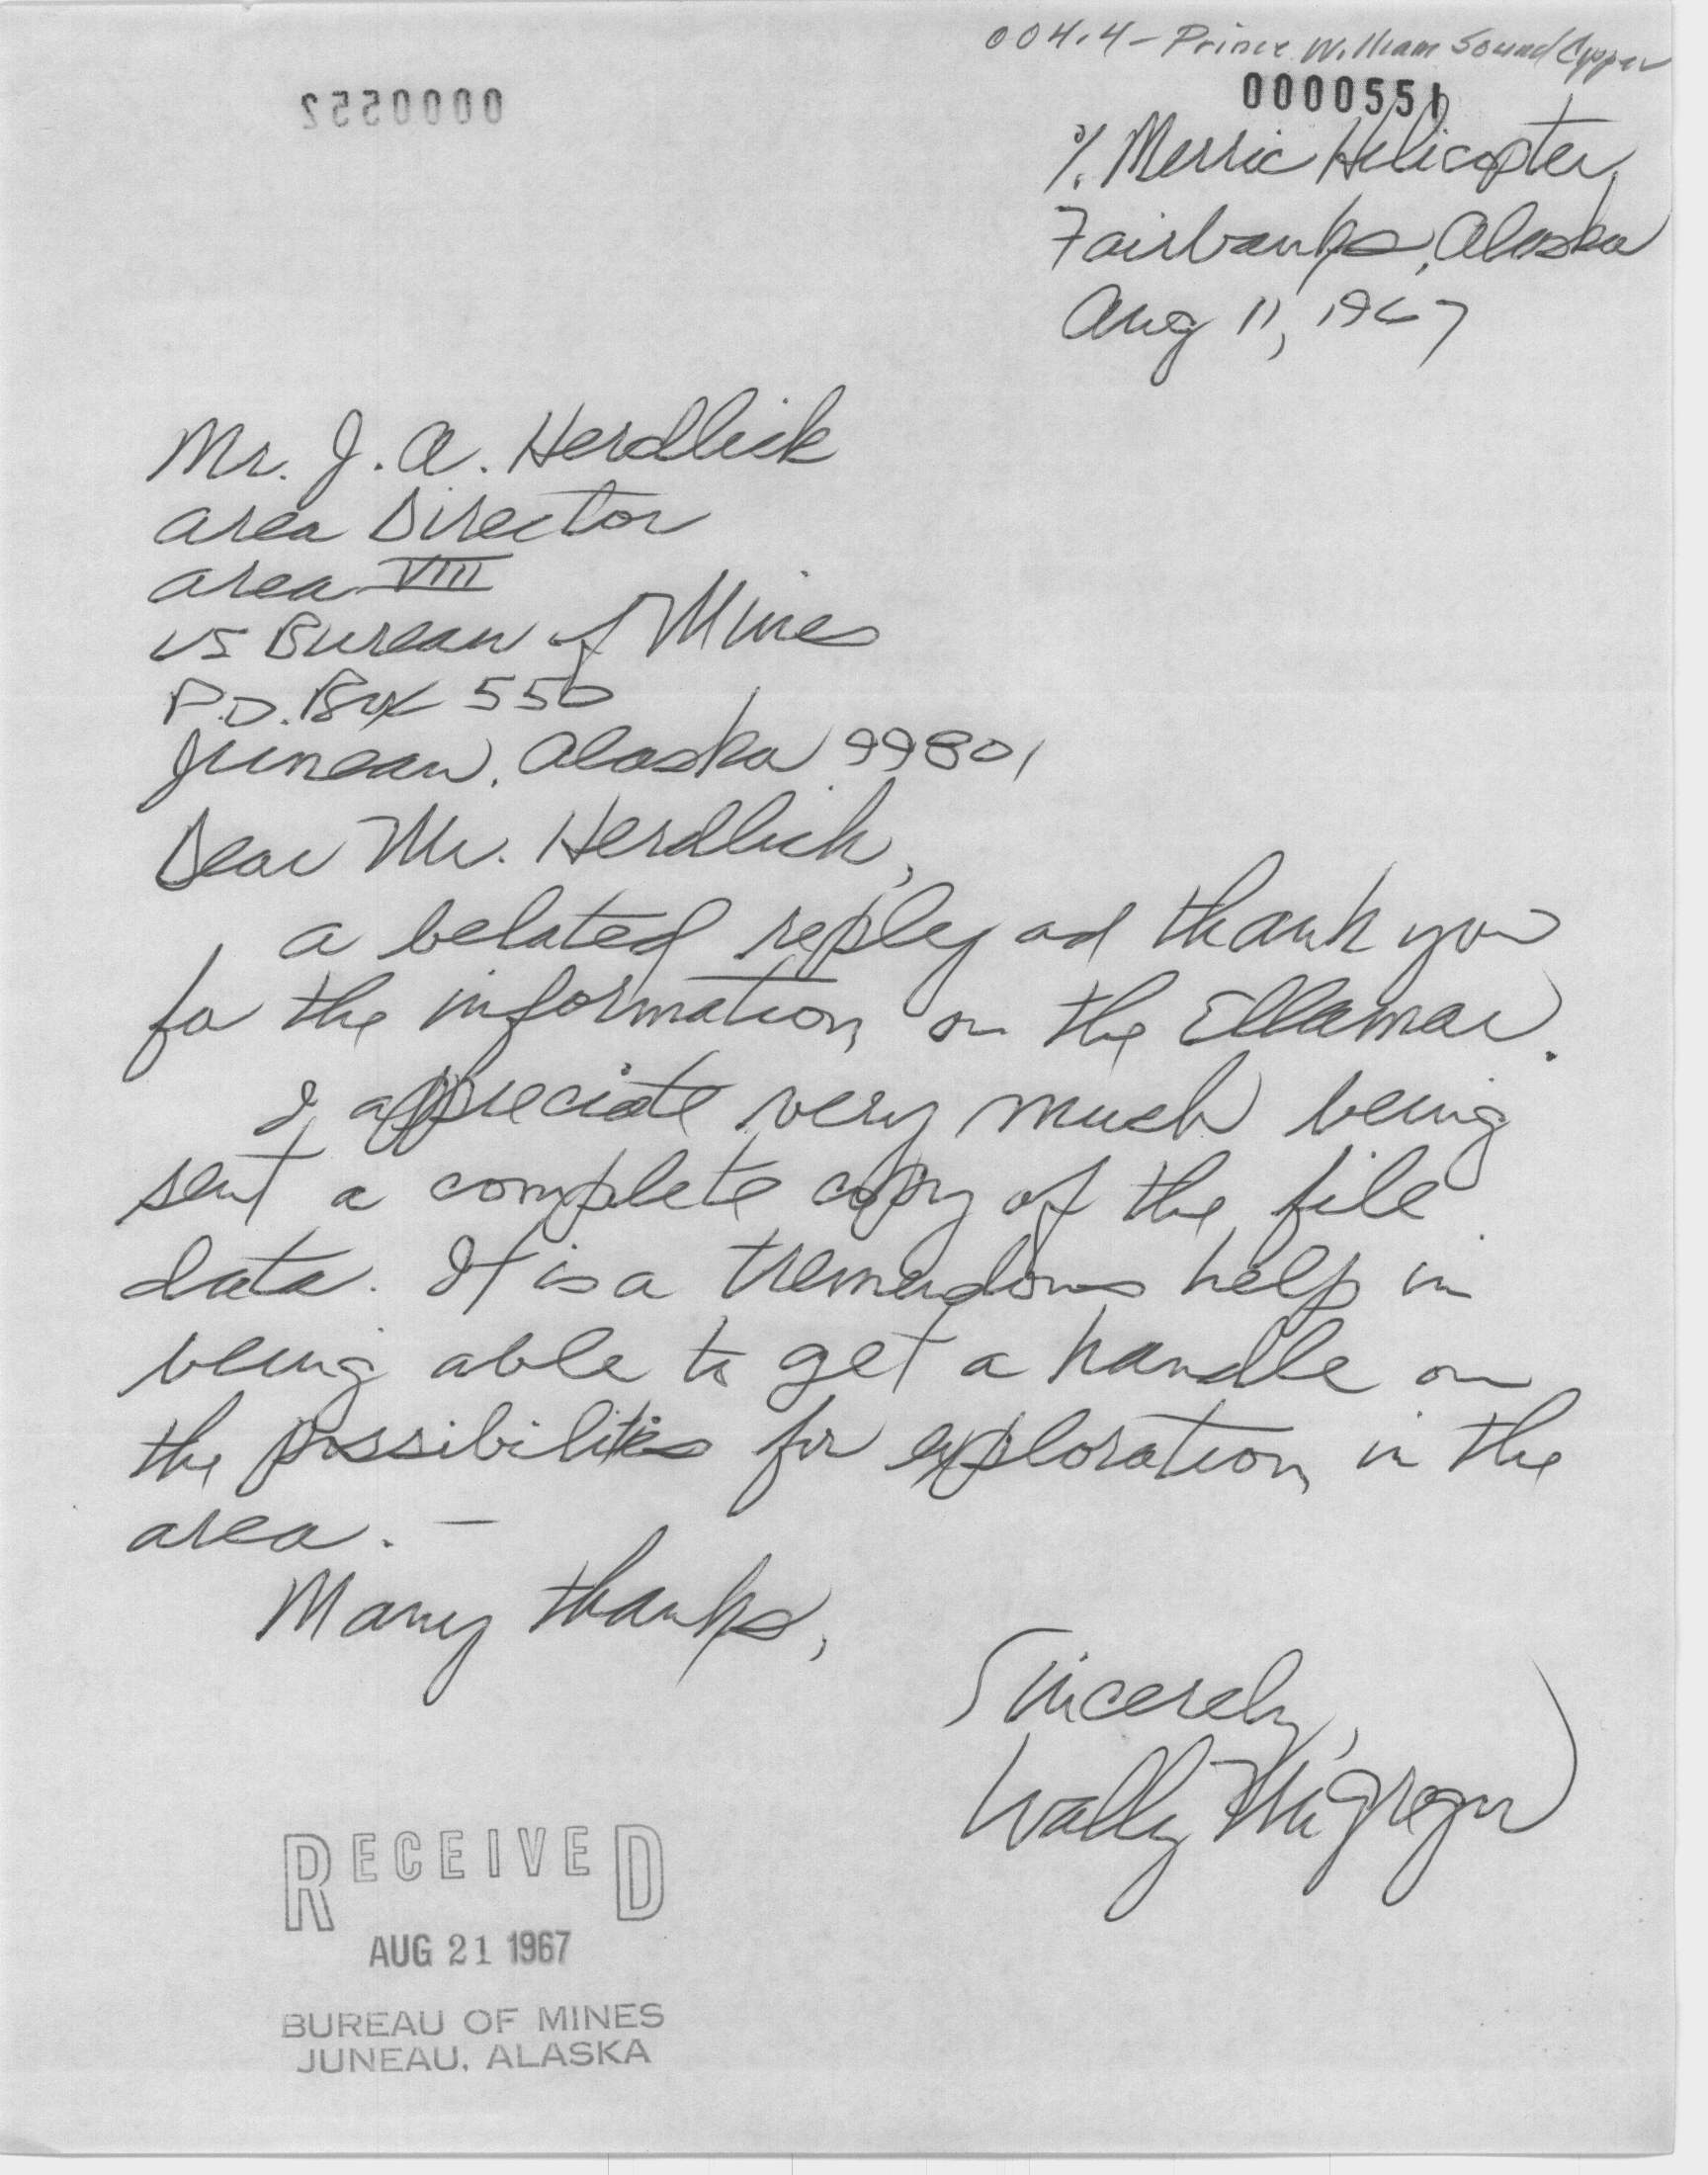 004.4 - Prince William Sound Copper
0000552
0000551
% Merric Helicopter,
Fairbanks, Alaska
Aug 11, 1967
Mr. J. A. Herdlick
Area Director
Area VIII
US Bureau of Mines
P.O. Box 550
Juneau, Alaska 99801
Dear Mr. Herdlick,
A belated reply ad thank you
for the information on the Ellamar.
I appreciate very much being
sent a complete copy of the file
data. It is a tremendous help in
being able to get a handle on
the possibilities for exploration in the
area. —
Many thanks,
Sincerely,
Wally McGregor
RECEIVED
AUG 21 1967
BUREAU OF MINES
JUNEAU, ALASKA